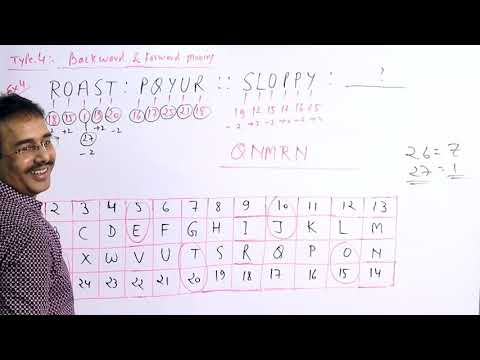 Type.4:. Backward & Forward moving
Ex4 ROAST : PQYUR :: SLOPPY : ?
18 15 1 19 20 16 17 25 21 19 12 15 16
+2 +2 -2 -2 +2
27
-2
QNMRN
26=Z
27=1
2 3 4 5 6 7 8 9 10 11 12 13
C D E F G H I J K L M
X W V U T S R Q P O N
24 23 22 21 20 19 18 17 16 15 14